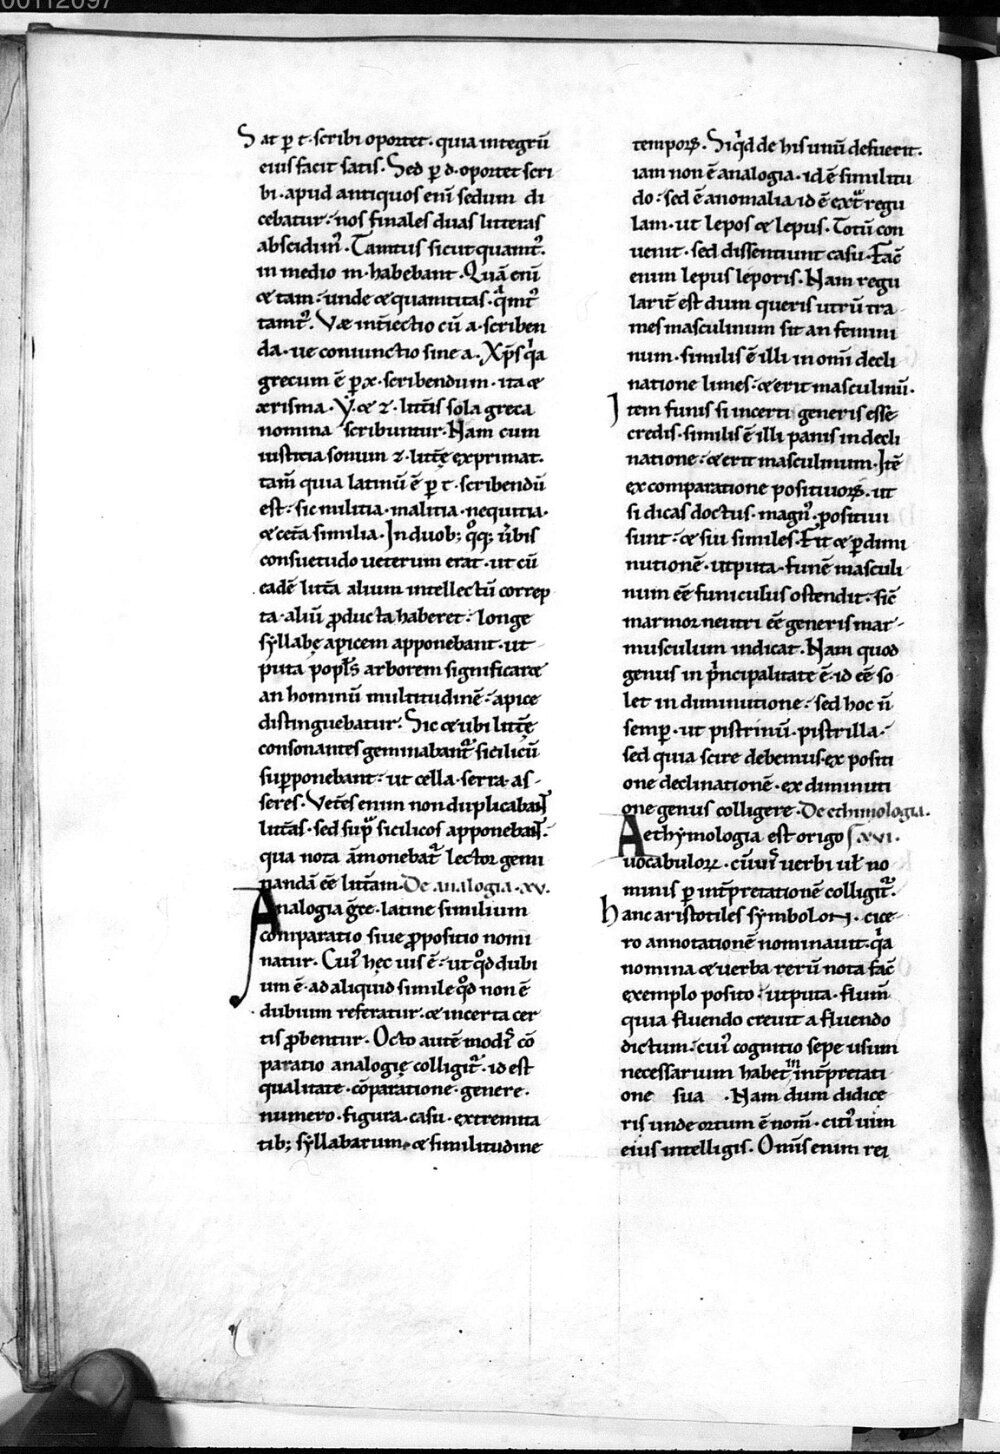 00112097
Sat ꝑ t·scribi oportet·quia integrū
eius facit satis·Sed ꝑ d·oportet scri
bi·apud antiquos enī sedum di
cebatur·nos finales duas litteras
abscidim᷒·Tamtus sicut quamt᷒·
in medio m·habebant·Quā enī
& tam·unde & quamtitas·qͥmt᷒
tamt᷒·Væ int̄iectio cū a·scriben
da·ue coniunctio sine a·Xp̄s qͥa
grecum ē ꝑ x·scribendum·ita &
xrisma·Y·& z·litt̄is sola greca
nomina scribuntur·Nam cum
iusticia sonum z·litt̄ę exprimat·
tam̄ quia latinū ē ꝑ t·scribendū
est·sic militia·malitia·nequitia·
& cet̄a similia·In duob; qͦq; ūbis
consuetudo ueterum erat·ut cū
eadē litt̄a alium intellectū correp
ta·aliū ꝓducta haberet·longe
syllabę apicem apponebant·ut
puta popl̄s arborem significar&
an hominū multitudinē·apice
distinguebatur·Sic & ubi litt̄ę
consonantes geminabant᷒ sicilicū
suꝑponebant·ut cella·serra·as-
seres·Vet̄es enim non duplicabant
litt̄as·sed supͣ sicilicos apponebant·
qua nota āmonebat᷒ lector gemi
nandā eē litt̄am·De analogia·xv·
Analogia ḡce·latine similium
comparatio siue ꝓpositio nomi
natur·Cui᷒ hęc uis ē·ut qͦd dubi
um ē·ad aliquid simile qͦd non ē
dubium referatur·& incerta cer
tis ꝓbentur·Octo autē modis cō
paratio analogię colligit᷒·id est
qualitate·cōparatione·genere·
numero·figura·casu·extremita
tib; syllabarum·& similitudine
temporꝝ·Si qͥd de his unū defuerit·
iam non ē analogia·id ē similitu
do·sed ē anomalia·id ē extͣ regu
lam·ut lepos & lepus·Totū con
uenit·sed dissentiunt casu·Fac̄
enim lepus leporis·Nam regu
larit̄ est dum queris utrū tra-
mes masculinum sit an femini
num·similis ē illi in omī decli
natione limes·& erit masculinū·
Item funis si incerti generis esse
credis·similis ē illi panis in decli
natione·& erit masculinum·Itē
ex comparatione positiuorꝝ·ut
si dicas doctus·magn᷒·positiui
sunt·& sui similes·Fit & ꝑ dimi
nutionē·utputa·funē masculi
num eē funiculus ostendit·sic̄
marmor neutri eē generis mar-
musculum indicat·Nam quod
genus in pͥncipalitate ē·id eē so
let in diminutione·sed hoc n̄
semꝑ·ut pistrinū·pistrilla·
sed quia scire debemus·ex positi
one declinationē·ex diminuti
one genus colligere·De ethimologia·
Aethymologia est origo xvi·
uocabulorꝝ·cū uis uerbi ul̄ no
minis ꝑ int̄pretationē colligit᷒·
hanc aristotiles symbolon·cice-
ro annotationē nominauit·qͥa
nomina & uerba rerū nota fac̄
exemplo posito·utputa·flum̄
quia fluendo creuit a fluendo
dictum·cui᷒ cognitio sepe usum
necessarium habet in int̄pretati
one sua·Nam dum didice
ris unde ortum ē nom̄·citi᷒ uim
eius intelligis·Omīs enim rei